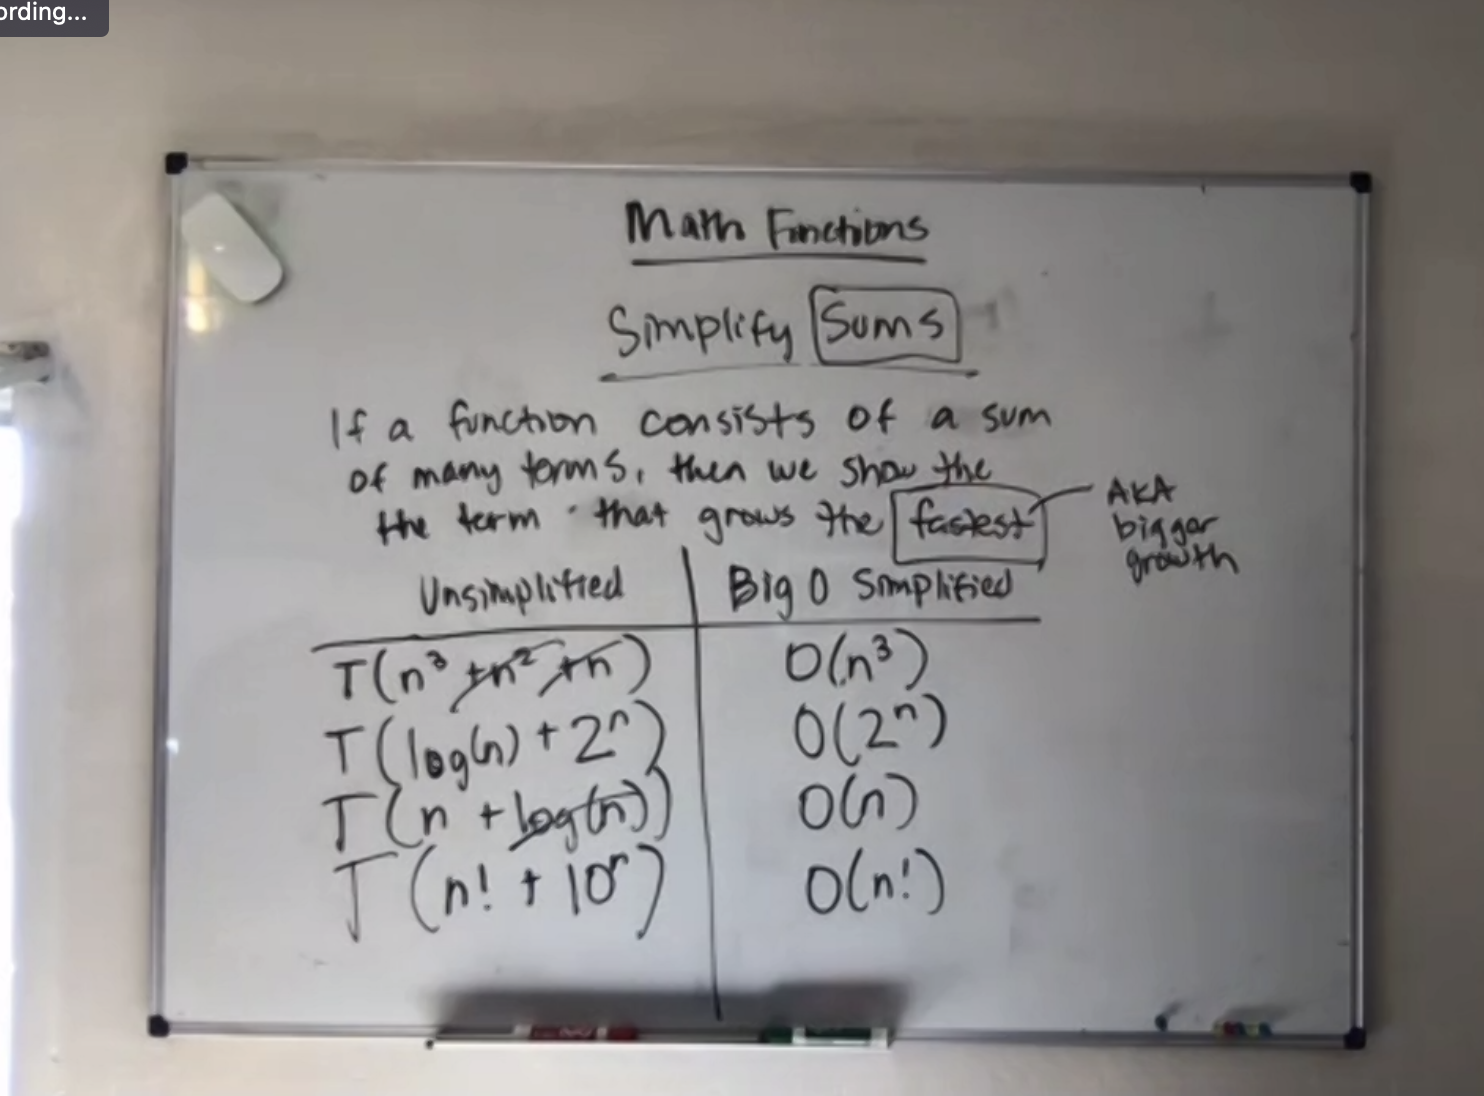 ording...
Math Functions
Simplify Sums
If a function consists of a sum
of many terms, then we show the
the term that grows the fastest
AKA
bigger
growth
Unsimplified
Big O Simplified
T(n³ +n² +n)
O(n³)
T(log(n) + 2ⁿ)
O(2ⁿ)
T(n + log(n))
O(n)
T(n! + 10ⁿ)
O(n!)